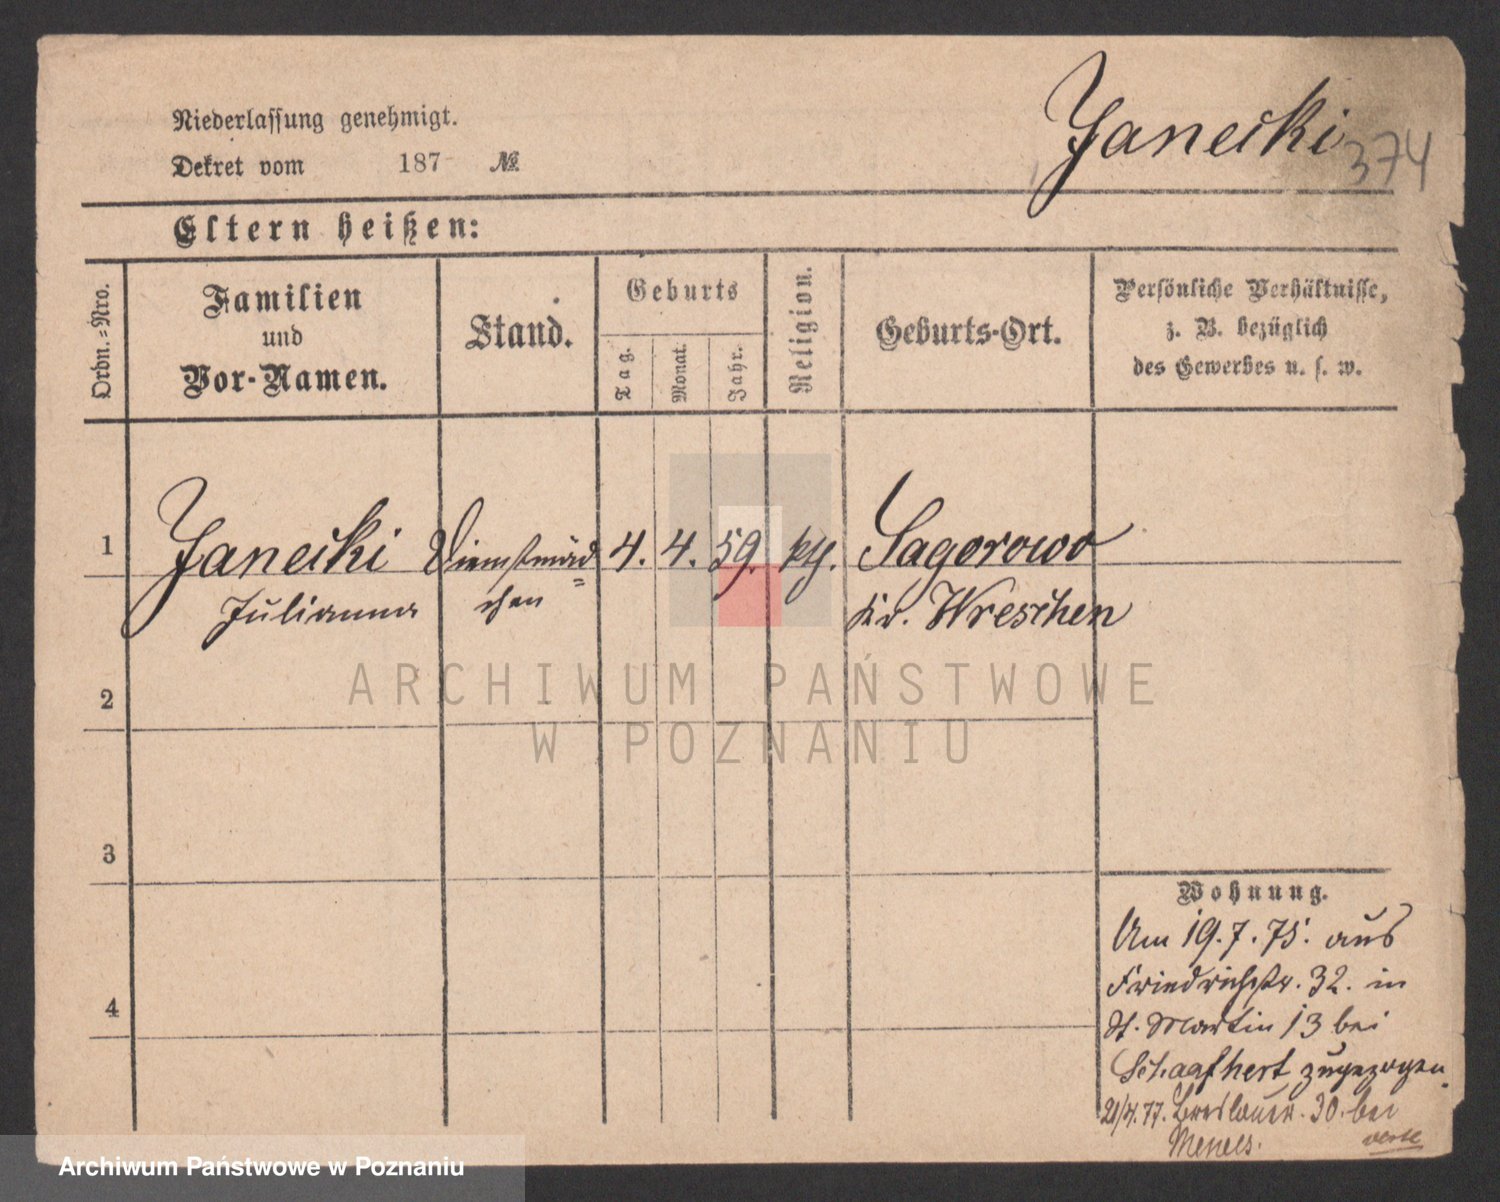 Niederlassung genehmigt.
Dekret vom 187 №
Janecki
374
Eltern heißen:
Ordn.-Nro.
Familien
und
Vor-Namen.
Stand.
Geburts
Tag.
Monat.
Jahr.
Religion.
Geburts-Ort.
Persönliche Verhältnisse,
z. B. bezüglich
des Gewerbes u. s. w.
1 Janecki Dienstmäd 4. 4. 59. kth. Sagorowo
Julianna chen Kr. Wreschen
2
3
4
Wohnung.
Am 19.7.75. aus
Friedrichstr. 32. in
St. Martin 13 bei
Schaafhert zugezogen.
21/4.77. Breslauer. 30. bei
verte
ARCHIWUM PAŃSTWOWE
W POZNANIU
Archiwum Państwowe w Poznaniu